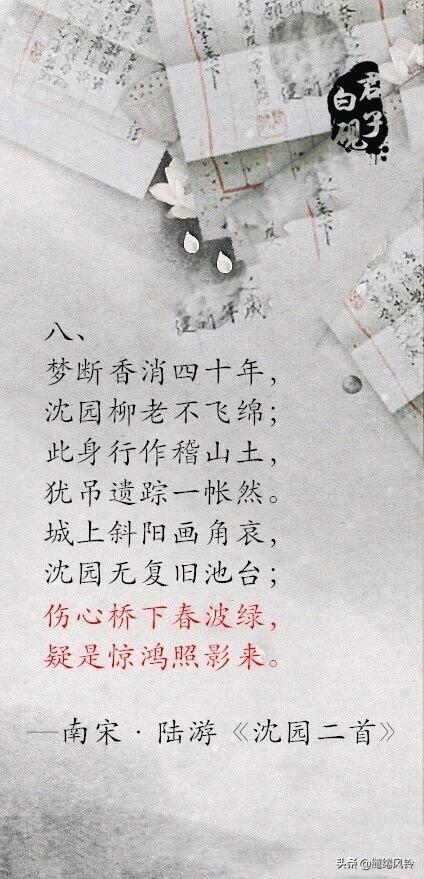 君子
白砚
八、
梦断香消四十年，
沈园柳老不飞绵；
此身行作稽山土，
犹吊遗踪一帐然。
城上斜阳画角哀，
沈园无复旧池台；
伤心桥下春波绿，
疑是惊鸿照影来。
—南宋·陆游《沈园二首》
头条@缱绻风铃